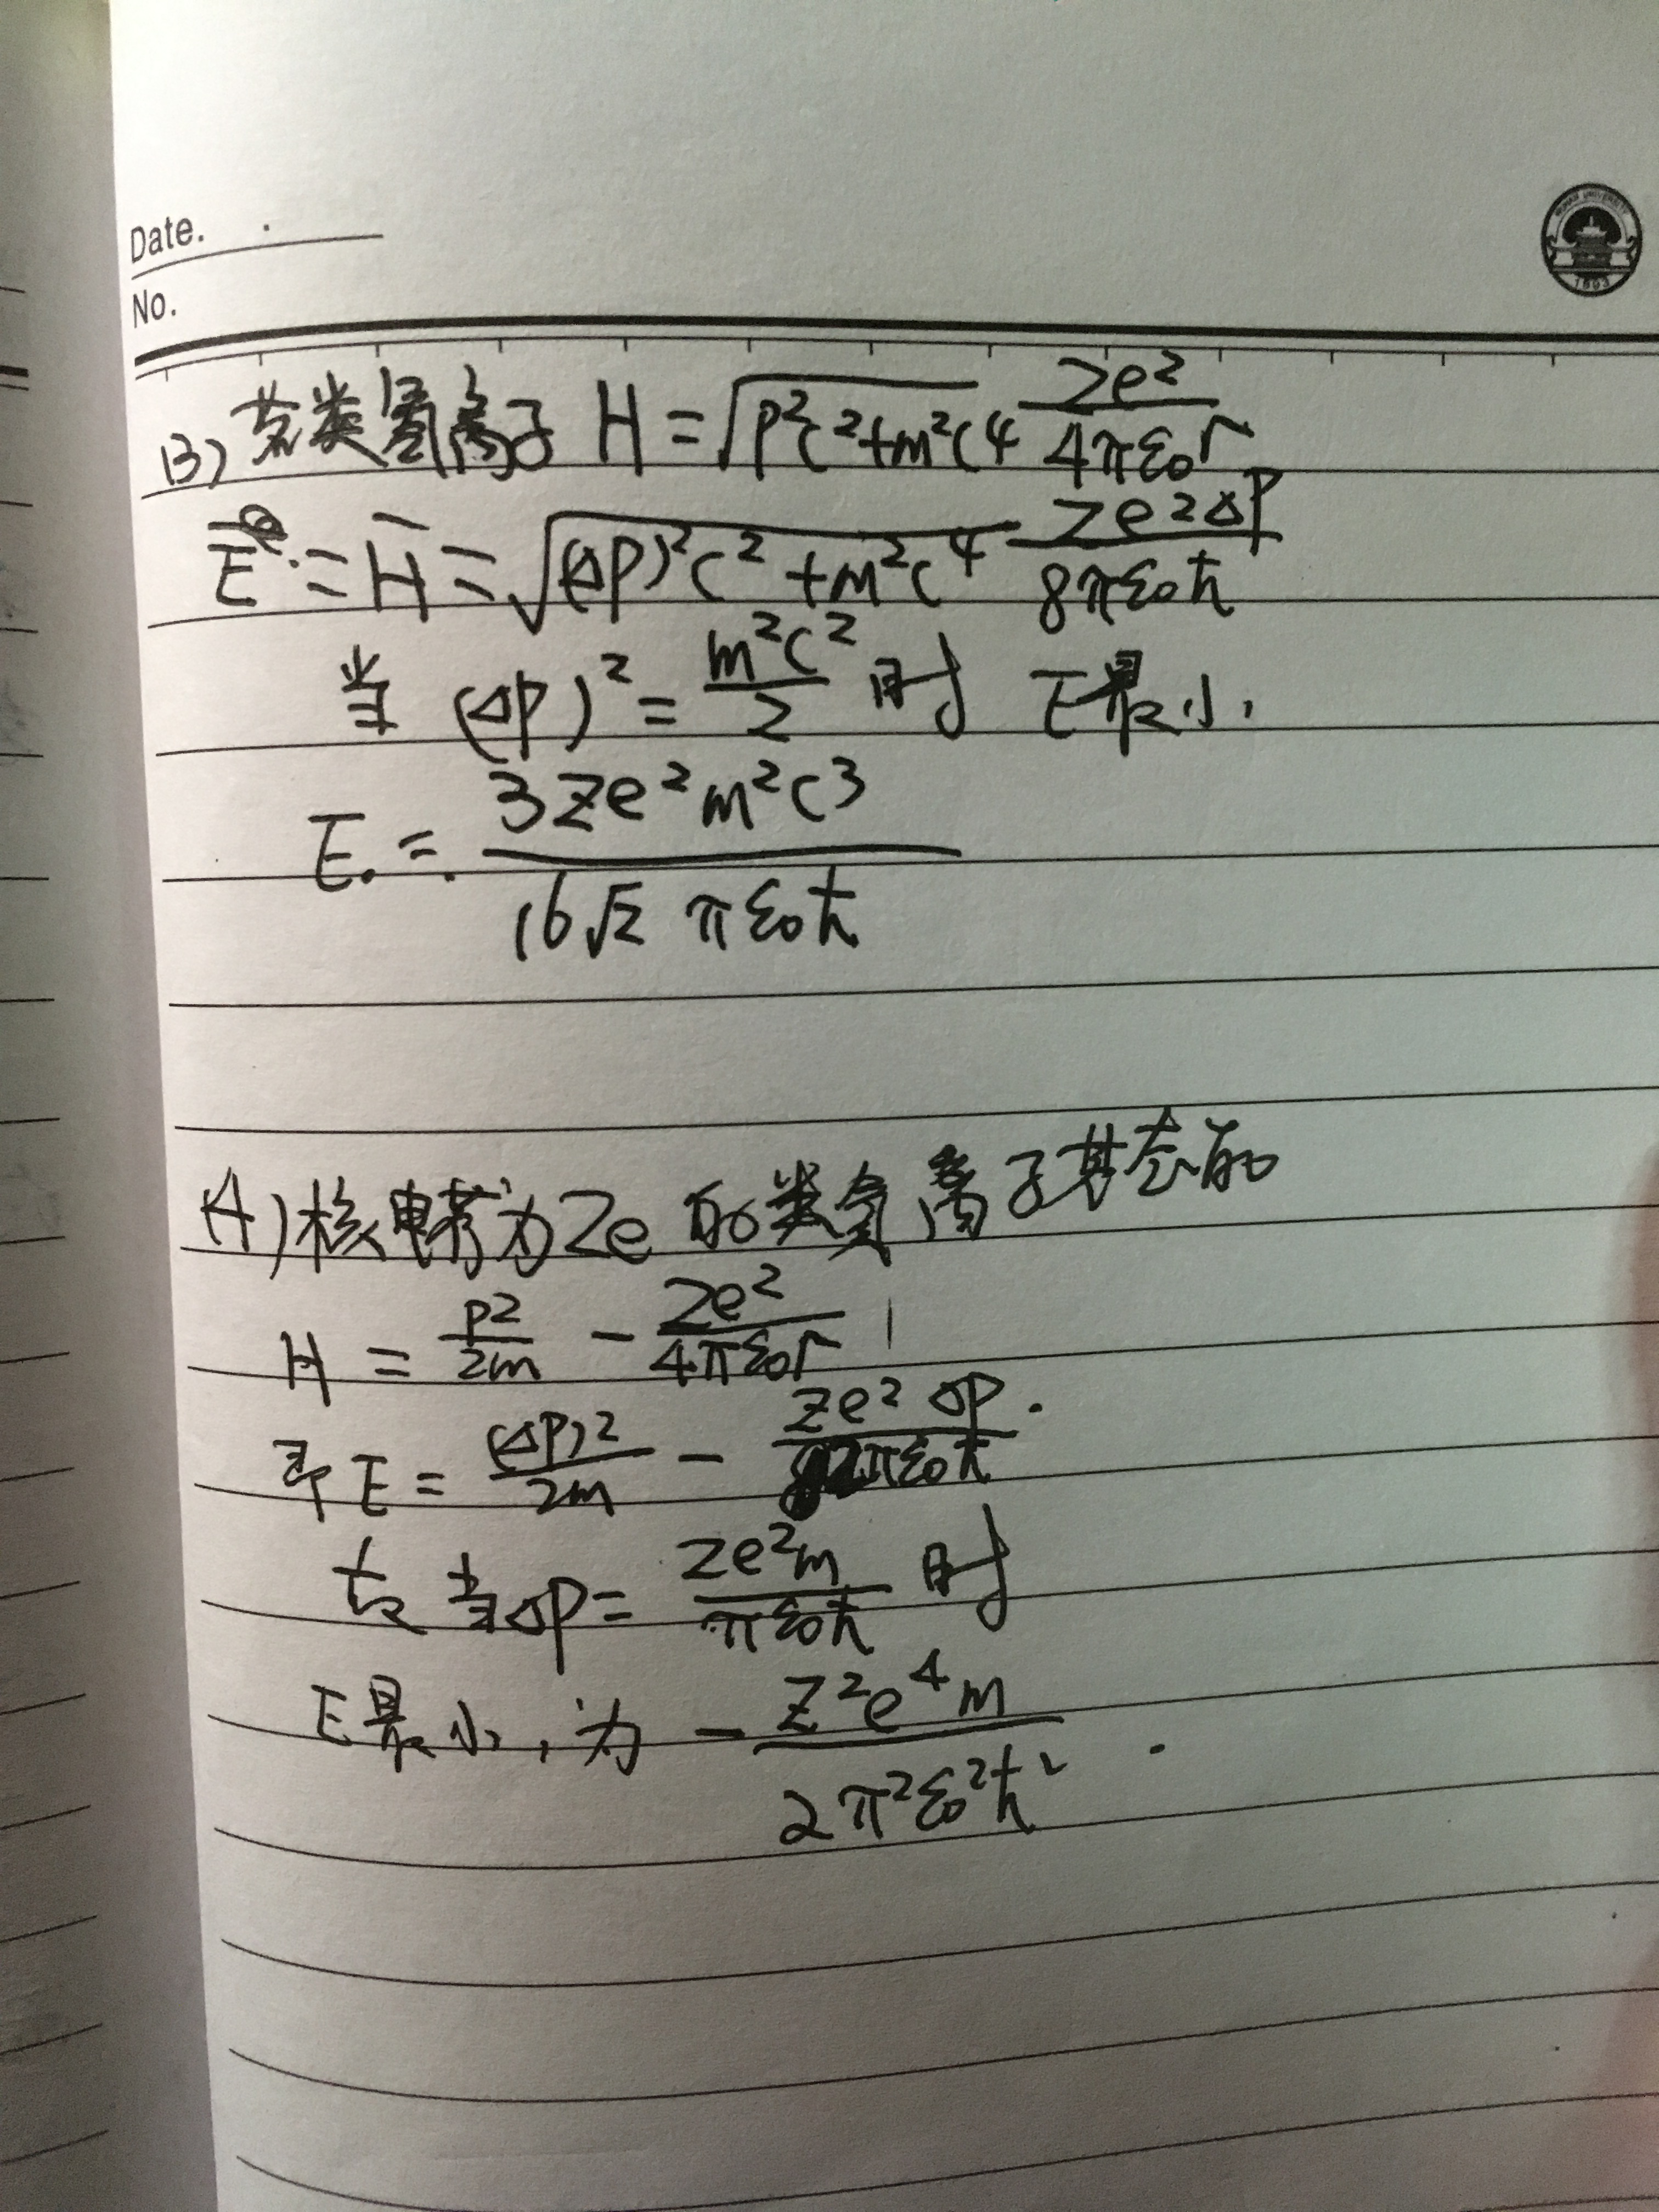 Date.
No.
WUHAN UNIVERSITY
1893
(3) 若类氢离子 H = √(p²c²+m²c⁴) Ze²/4πε₀r
Ē = H̄ = √((Δp)²c²+m²c⁴) Ze²Δp/8πε₀ħ
当 (Δp)² = m²c²/2 时 E最小,
E. = 3Ze²m²c³/16√2 πε₀ħ
(4) 核电荷为Ze 的类氢离子基态的
H = p²/2m - Ze²/4πε₀r
即 E = (Δp)²/2m - Ze²Δp/2πε₀ħ.
故 当Δp = Ze²m/πε₀ħ 时
E最小, 为 - Z²e⁴m/2π²ε₀²ħ².